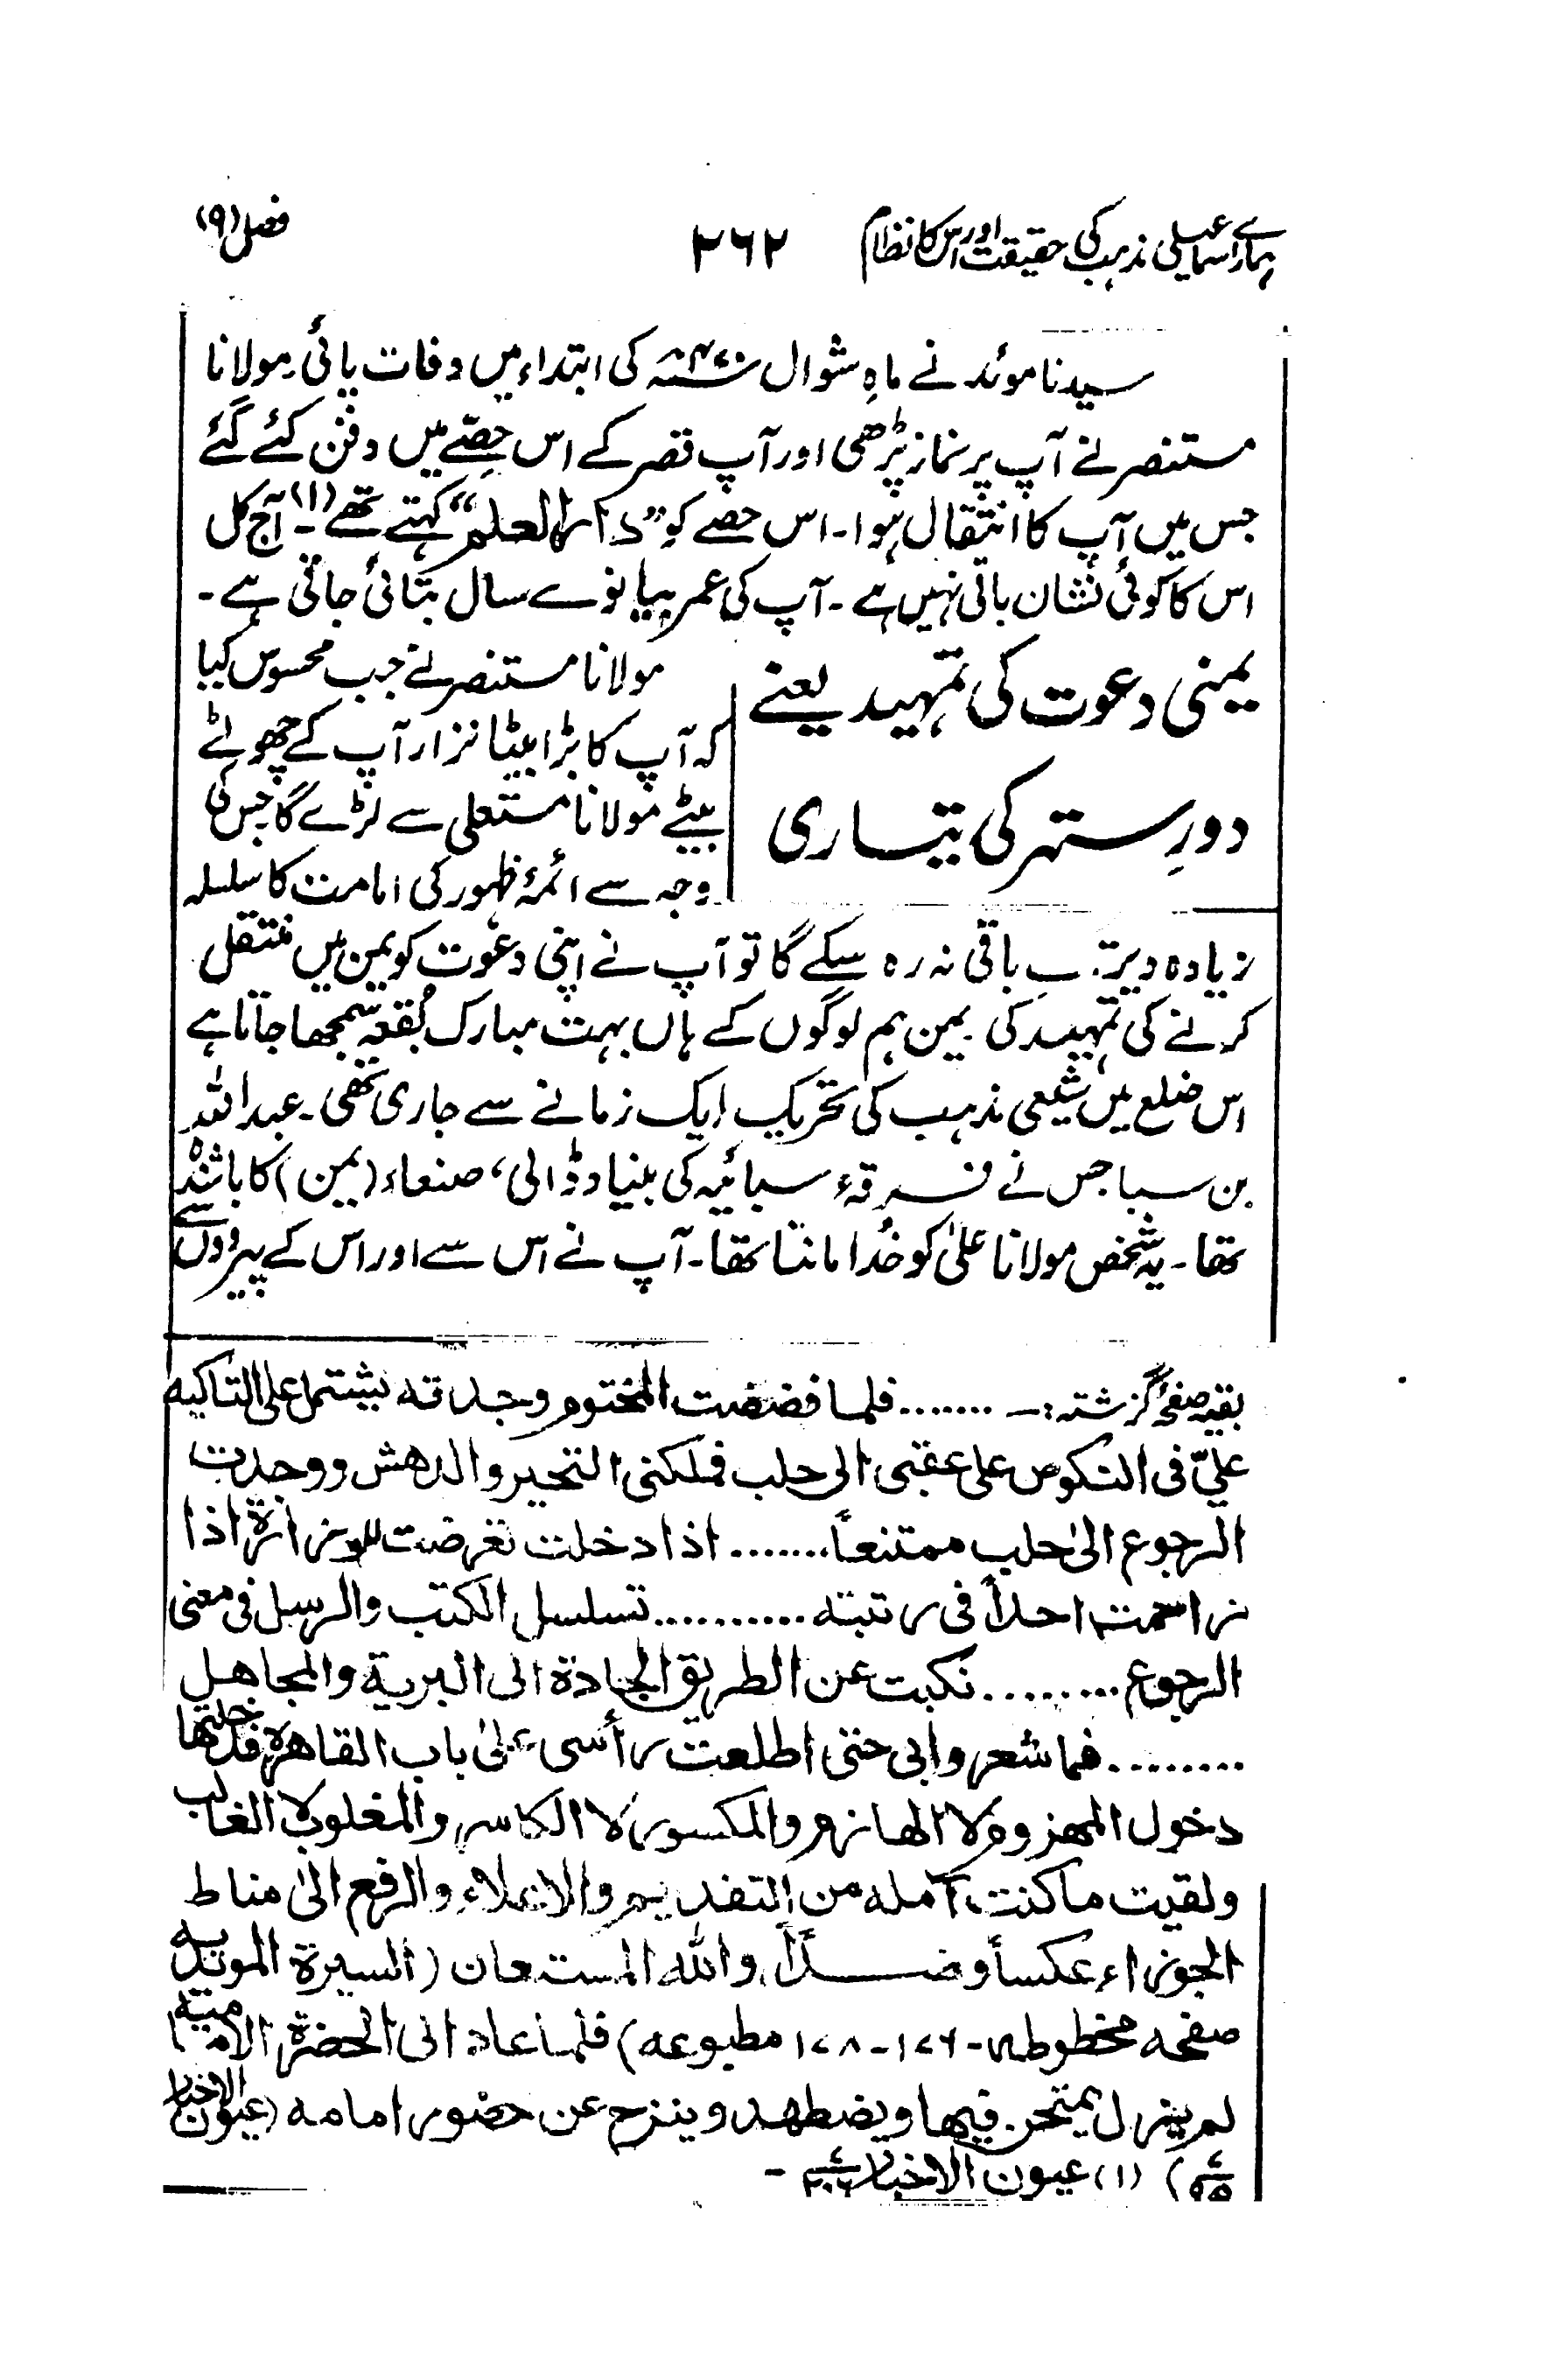 ہمارے اسماعیلی مذہب کی حقیقت اور اس کا نظام ۲۶۲ فصل (۹)
سیدنا موئد نے ماہِ شوال ۴۷۰ھ کی ابتداء میں وفات پائی۔ مولانا
مستنصر نے آپ پر نماز پڑھی اور آپ قصر کے اس حصّے میں دفن کئے گئے
جس میں آپ کا انتقال ہوا۔ اس حصے کو ”دار العلم“ کہتے تھے (۱)۔ آج کل
اس کا کوئی نشان باقی نہیں ہے۔ آپ کی عمر بیانوے سال بتائی جاتی ہے۔
یمنی دعوت کی تمہید یعنے
دورِ ستر کی تیاری
مولانا مستنصر نے جب محسوس کیا
کہ آپ کا بڑا بیٹا نزار آپ کے چھوٹے
بیٹے مولانا مستعلی سے لڑے گا جس کی
وجہ سے ائمۂ ظہور کی امامت کا سلسلہ
زیادہ دیر تک باقی نہ رہ سکے گا تو آپ نے اپنی دعوت کو یمن میں منتقل
کرنے کی تمہید کی۔ یمن ہم لوگوں کے ہاں بہت مبارک بُقعہ سمجھا جاتا ہے
اس ضلع میں شیعی مذہب کی تحریک ایک زمانے سے جاری تھی۔ عبداللہ
بن سبا جس نے فرقۂ سبائیہ کی بنیاد ڈالی، صنعاء (یمن) کا باشندہ
تھا۔ یہ شخص مولانا علیؑ کو خُدا مانتا تھا۔ آپ نے اس سے اور اس کے پیرووں سے
بقیہ صفحۂ گزشتہ:۔ ....... فلما فضضت المختوم وجدته یشتمل علی التاکید
علیّ فی النکوص علی عقبی الی حلب فملکنی التحیر والدهش ووجدت
الرجوع الیٰ حلب ممتنعاً....... اذا دخلت تعرضت للوزارة اذا
زاحمت احداً فی رتبته .......... تسلسل الکتب والرسل فی معنی
الرجوع ......... نکبت عن الطریق الجادة الی البریة والمجاهل
......... فما شعروا بی حتی اطلعت رأسی علیٰ باب القاهرة فدخلتها
دخول المهزوم لا الهازم والمکسور لا الکاسر والمغلوب لا الغالب
ولقیت ما کنت آمله من التقدیم والاعلاء والرفع الیٰ مناط
الجوزاء عکساً وضداً، والله المستعان (السیرة المویدیه
صفحه مخطوطه - ۱۷۶ - ۱۷۸ مطبوعه) فلما عاد الی الحضرة الامامیة
لم یزل یمتحن فیها ویضطهد وینزح عن حضور امامه (عیون الاخبار
۷/۵۵) (۱) عیون الاخبار -